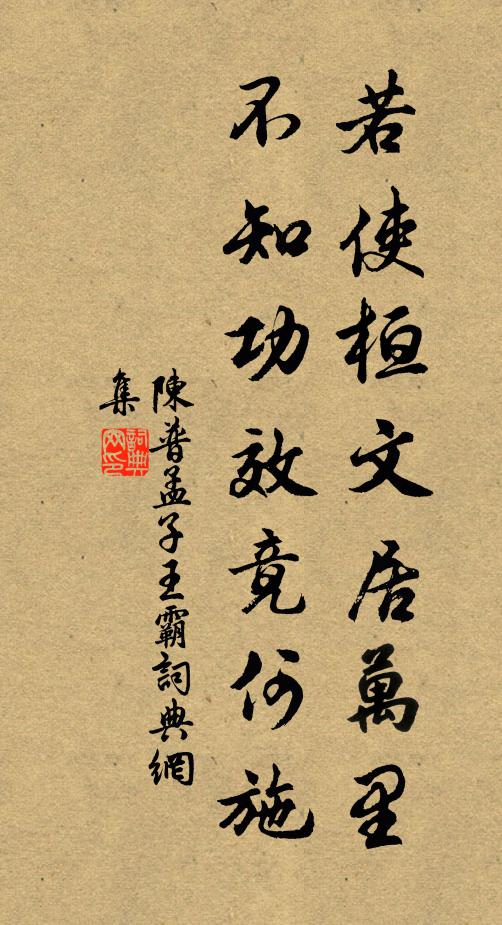 若使桓文居萬里
不知功效竟何施
陳普孟子王霸詞典網
集
詞典
网印